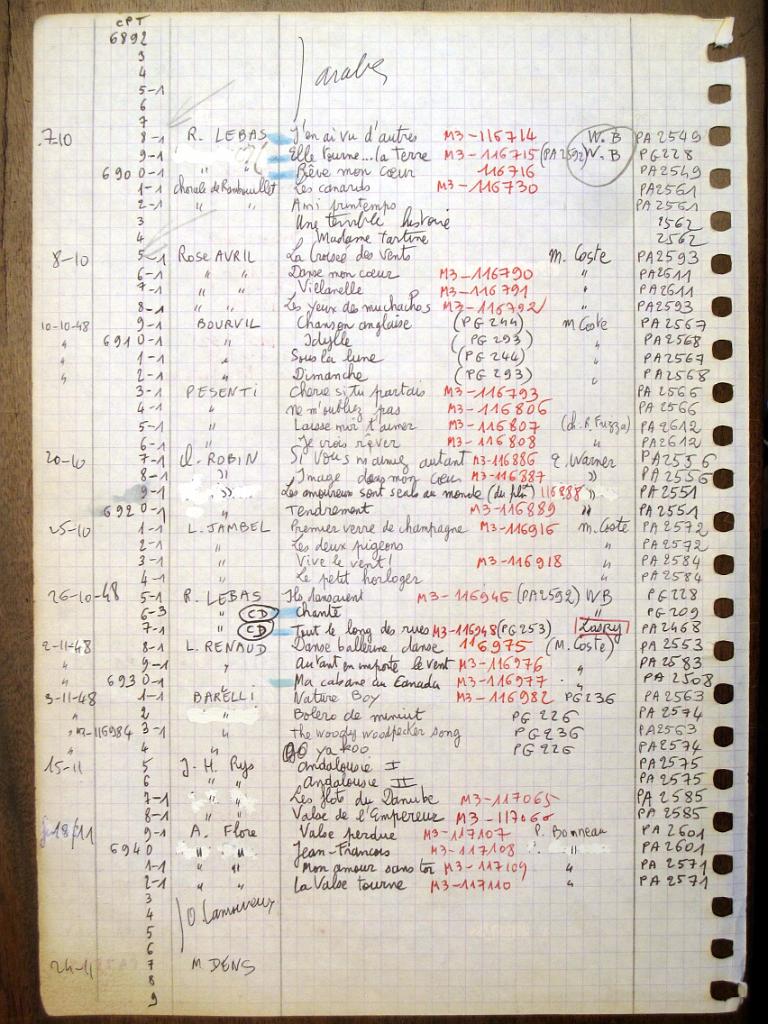 CPT
6892
3
4
5-1
6
arabe
7
7-10 8-1 R. LEBAS J'en ai vu d'autres M3-115714 W.B PA 2549
9-1 Elle tourne...la terre M3-116715 (PA2592) W.B PG228
690 0-1 " Rêve mon cœur 116716 PA2549
1-1 chorale de Rambouillet Les canards M3-116730 PA2561
2-1 " Ami printemps PA2561
3 Une terrible histoire 2562
4 Madame tartine 2562
8-10 5-1 Rose AVRIL La Croisée des vents M. Coste PA2593
6-1 " " Danse mon cœur M3-116790 " PA2611
7-1 " " Villanelle M3-116791 " PA2611
8-1 " " Les yeux des muchachos M3-116792 PA2593
10-10-48 9-1 BOURVIL Chanson anglaise (PG 244) M Coste PA2567
" 691 0-1 " Idylle (PG 293) " PA2568
" 1-1 " Sous la lune (PG 244) " PA2567
" 2-1 " Dimanche (PG 293) " PA2568
3-1 PESENTI Cherie si tu partais M3-116793 PA 2566
4-1 " ne m'oubliez pas M3-116806 PA 2566
5-1 " Laisse moi t'aimer M3-116807 (ch. R. Fuzza) PA2612
6-1 " Je crois rêver M3-116808 PA2612
20-10 7-1 d. ROBIN Si vous m'aimez autant M3-116886 q. Warner PA2556
8-1 " Image dans mon cœur M3-116887 " PA2556
9-1 " Les amoureux sont seuls au monde (du film) 116888 " PA2551
692 0-1 " Tendrement M3-116889 " PA2551
25-10 1-1 L. JAMBEL Premier verre de champagne M3-116916 M. Coste PA 2572
2-1 " Les deux pigeons " PA 2572
3-1 " Vive le vent! M3-116918 " PA 2584
4-1 " Le petit horloger " PA 2584
26-10-48 5-1 R. LEBAS Ils dansaient M3-116946 (PA2592) WB PG228
6-3 CD Chante " PG 209
7-1 CD Tout le long des rues M3-116948 (PG253) Lasry PA2468
2-11-48 8-1 L. RENAUD Danse ballerine danse 116975 (M. Coste) PA 2553
" 9-1 " Autant en emporte le vent M3-116976 " PA 2583
" 693 0-1 " Ma cabane au Canada M3-116977 " PA 2508
3-11-48 1-1 BARELLI Nature Boy M3-116982 PG236 PA 2563
" 2 " Bolero de minuit PG 226 PA 2574
" M3-116984 3-1 " The woody woodpecker song PG236 PA2563
" 4 " Go ya koo PG 226 PA2574
15-11 5 J-H. Rys andalousie I PA2575
6 " " andalousie II PA 2575
7-1 " " Les flots du Danube M3-117065 PA 2585
8-1 " " Valse de l'Empereur M3-117066 PA 2585
18/11 9-1 A. Flore Valse perdue M3-117107 P. Bonneau PA 2601
694 0 " " Jean-François M3-117108 " PA 2601
1-1 " " Mon amour sans toi M3-117109 " PA 2571
2-1 " " La Valse tourne M3-117110 " PA 2571
3
4 O. Lamoureux
5
6
24-11 7 M. DENS
8
9